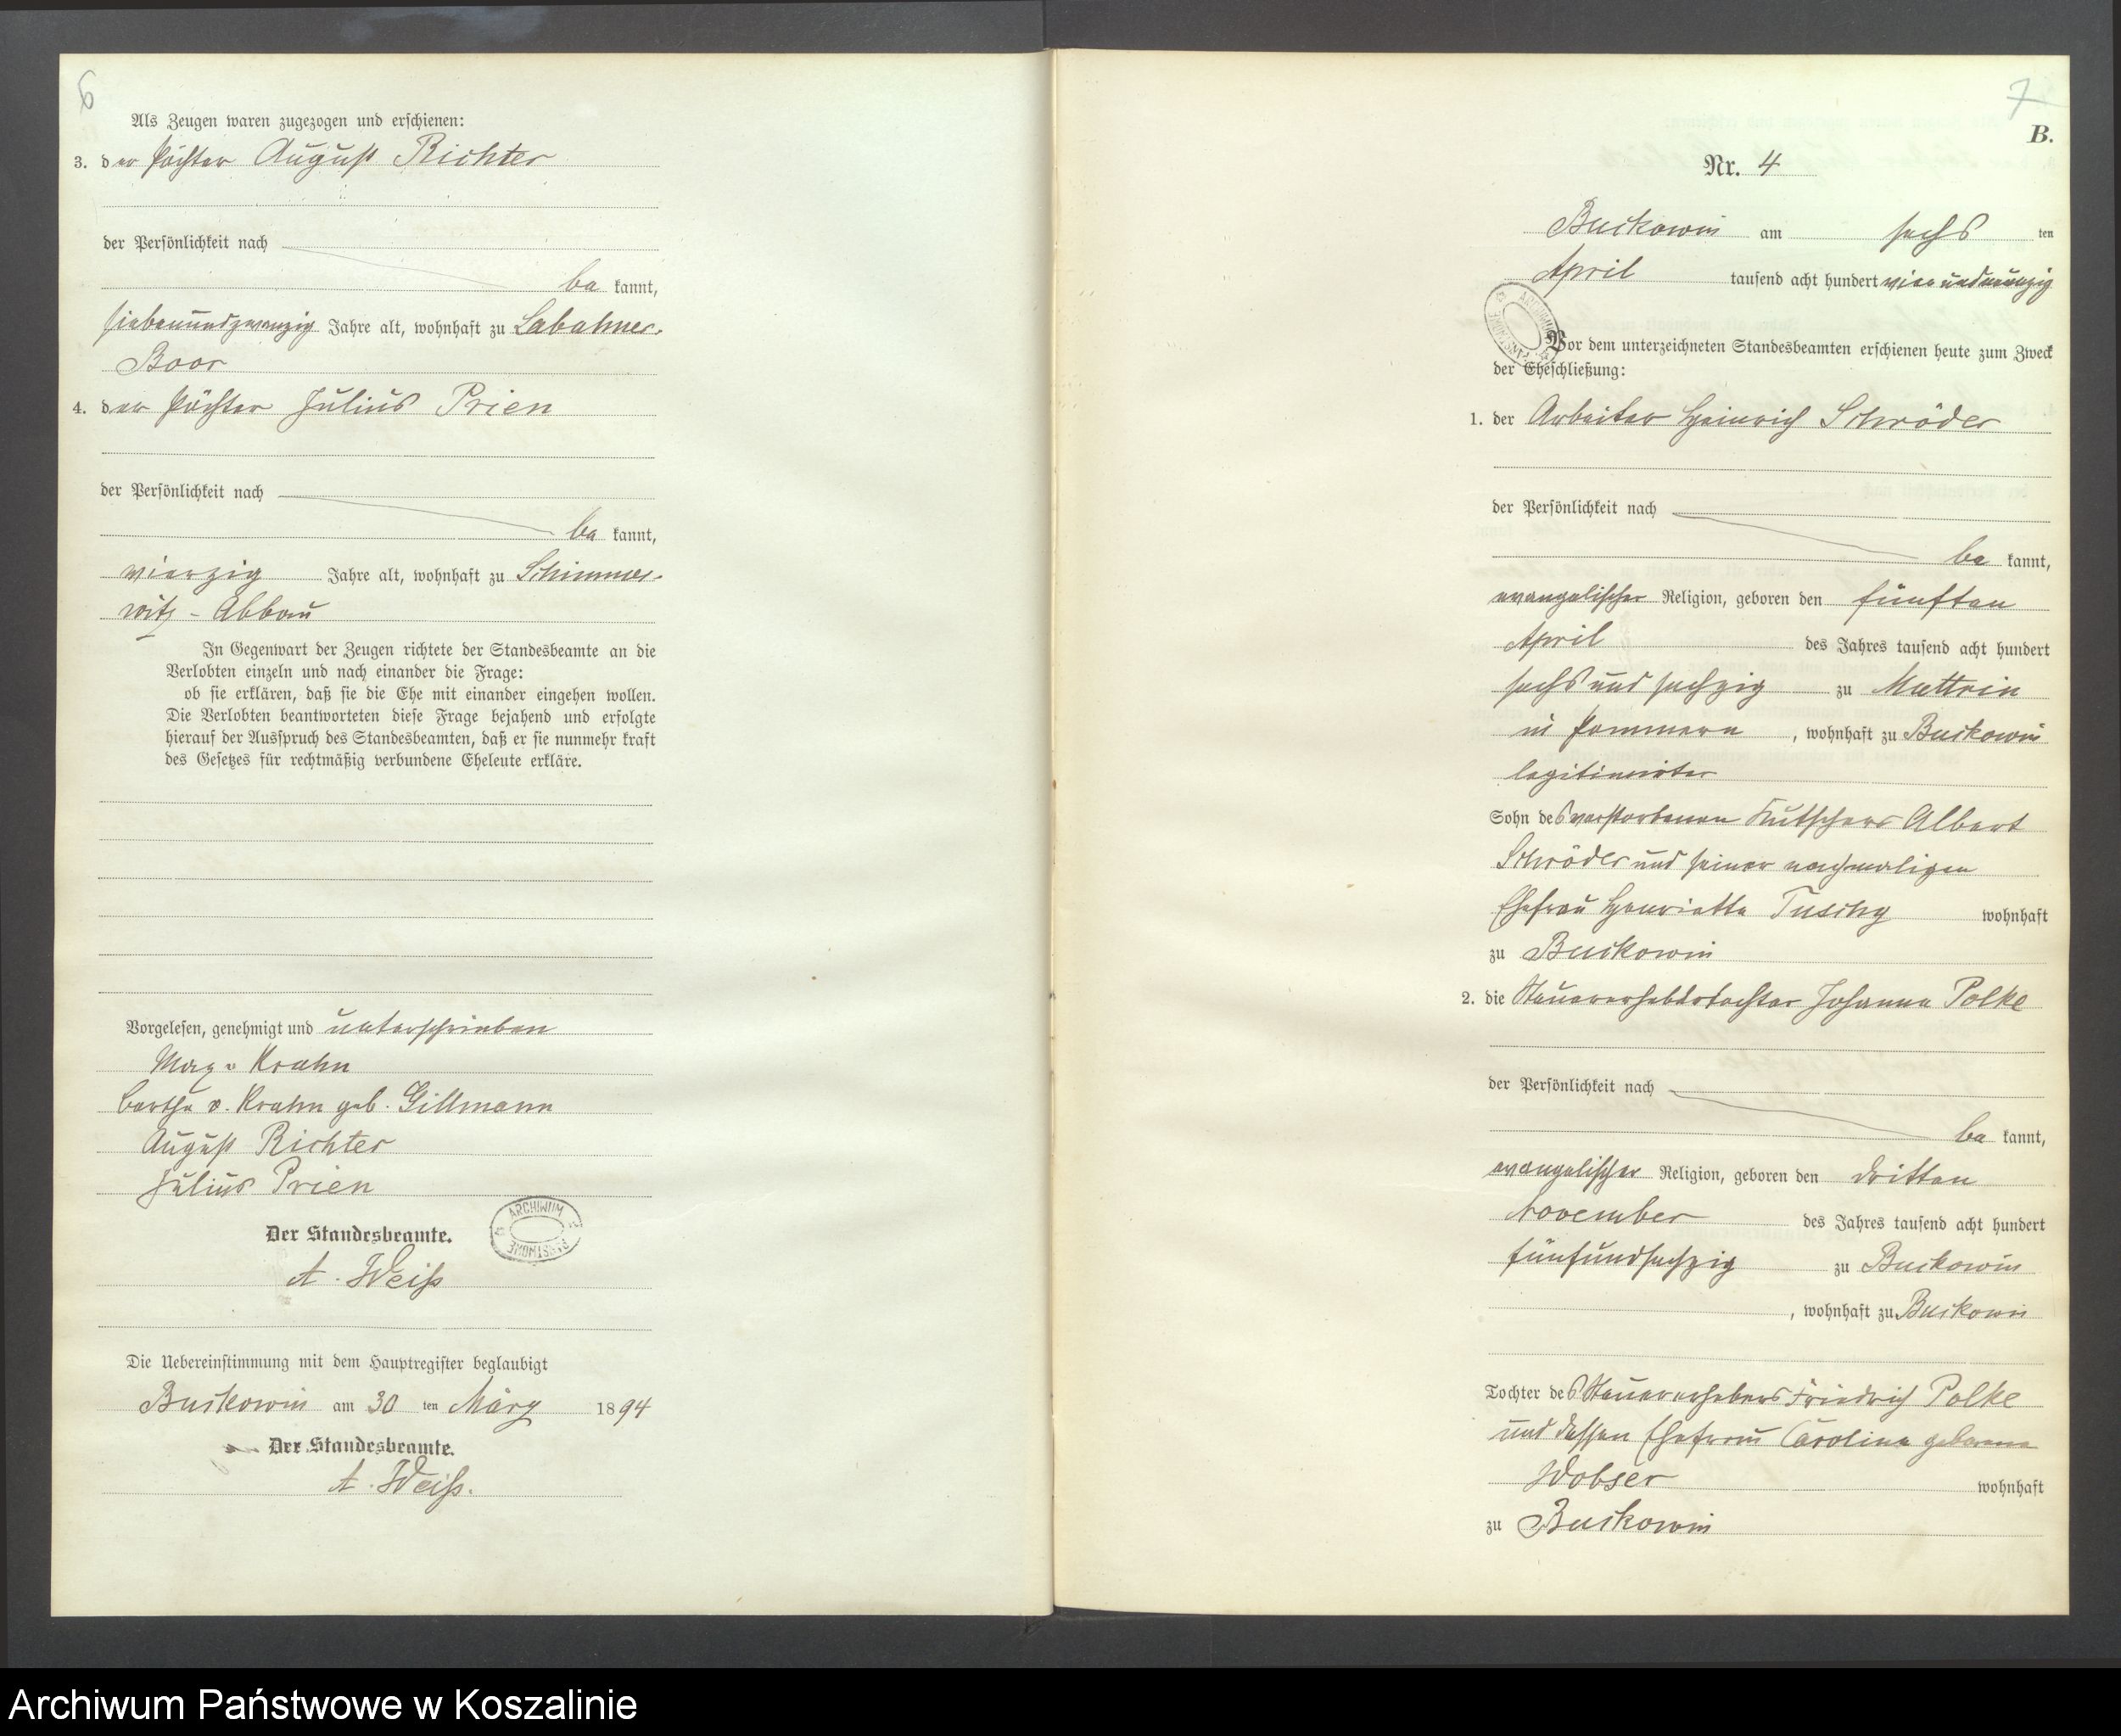 6
Als Zeugen waren zugezogen und erschienen:
3. der Pächter August Richter
der Persönlichkeit nach
be kannt,
siebenundzwanzig Jahre alt, wohnhaft zu Labehner-
Boor
4. der Pächter Julius Prien
der Persönlichkeit nach
be kannt,
vierzig Jahre alt, wohnhaft zu Schimmer-
witz - Abbau
In Gegenwart der Zeugen richtete der Standesbeamte an die
Verlobten einzeln und nach einander die Frage:
ob sie erklären, daß sie die Ehe mit einander eingehen wollen.
Die Verlobten beantworteten diese Frage bejahend und erfolgte
hierauf der Ausspruch des Standesbeamten, daß er sie nunmehr kraft
des Gesetzes für rechtmäßig verbundene Eheleute erkläre.
Vorgelesen, genehmigt und unterschrieben
Max v Krahn
Bertha v. Krahn geb. Gillmann
August Richter
Julius Prien
ARCHIWUM PAŃSTWOWE
Der Standesbeamte.
A. Weiß
Die Uebereinstimmung mit dem Hauptregister beglaubigt
Buckowin am 30 ten März 1894
Der Standesbeamte.
A. Weiß.
7
B.
Nr. 4
Buckowin am sechs ten
April tausend acht hundert vierundneunzig
ARCHIWUM PAŃSTWOWE
Vor dem unterzeichneten Standesbeamten erschienen heute zum Zweck
der Eheschließung:
1. der Arbeiter Heinrich Schröder
der Persönlichkeit nach
be kannt,
evangelischer Religion, geboren den fünften
April des Jahres tausend acht hundert
sechs und sechzig zu Muttrin
in Pommern, wohnhaft zu Buckowin
legitimirter
Sohn des verstorbenen Kutschers Albert
Schröder und seiner nachmaligen
Ehefrau Henriette Tuschy wohnhaft
zu Buckowin
2. die Steuererhebertochter Johanna Polke
der Persönlichkeit nach
be kannt,
evangelischer Religion, geboren den dritten
November des Jahres tausend acht hundert
fünfundsechzig zu Buckowin
, wohnhaft zu Buckowin
Tochter des Steuererhebers Friedrich Polke
und dessen Ehefrau Caroline geborene
Wobser wohnhaft
zu Buckowin
Archiwum Państwowe w Koszalinie